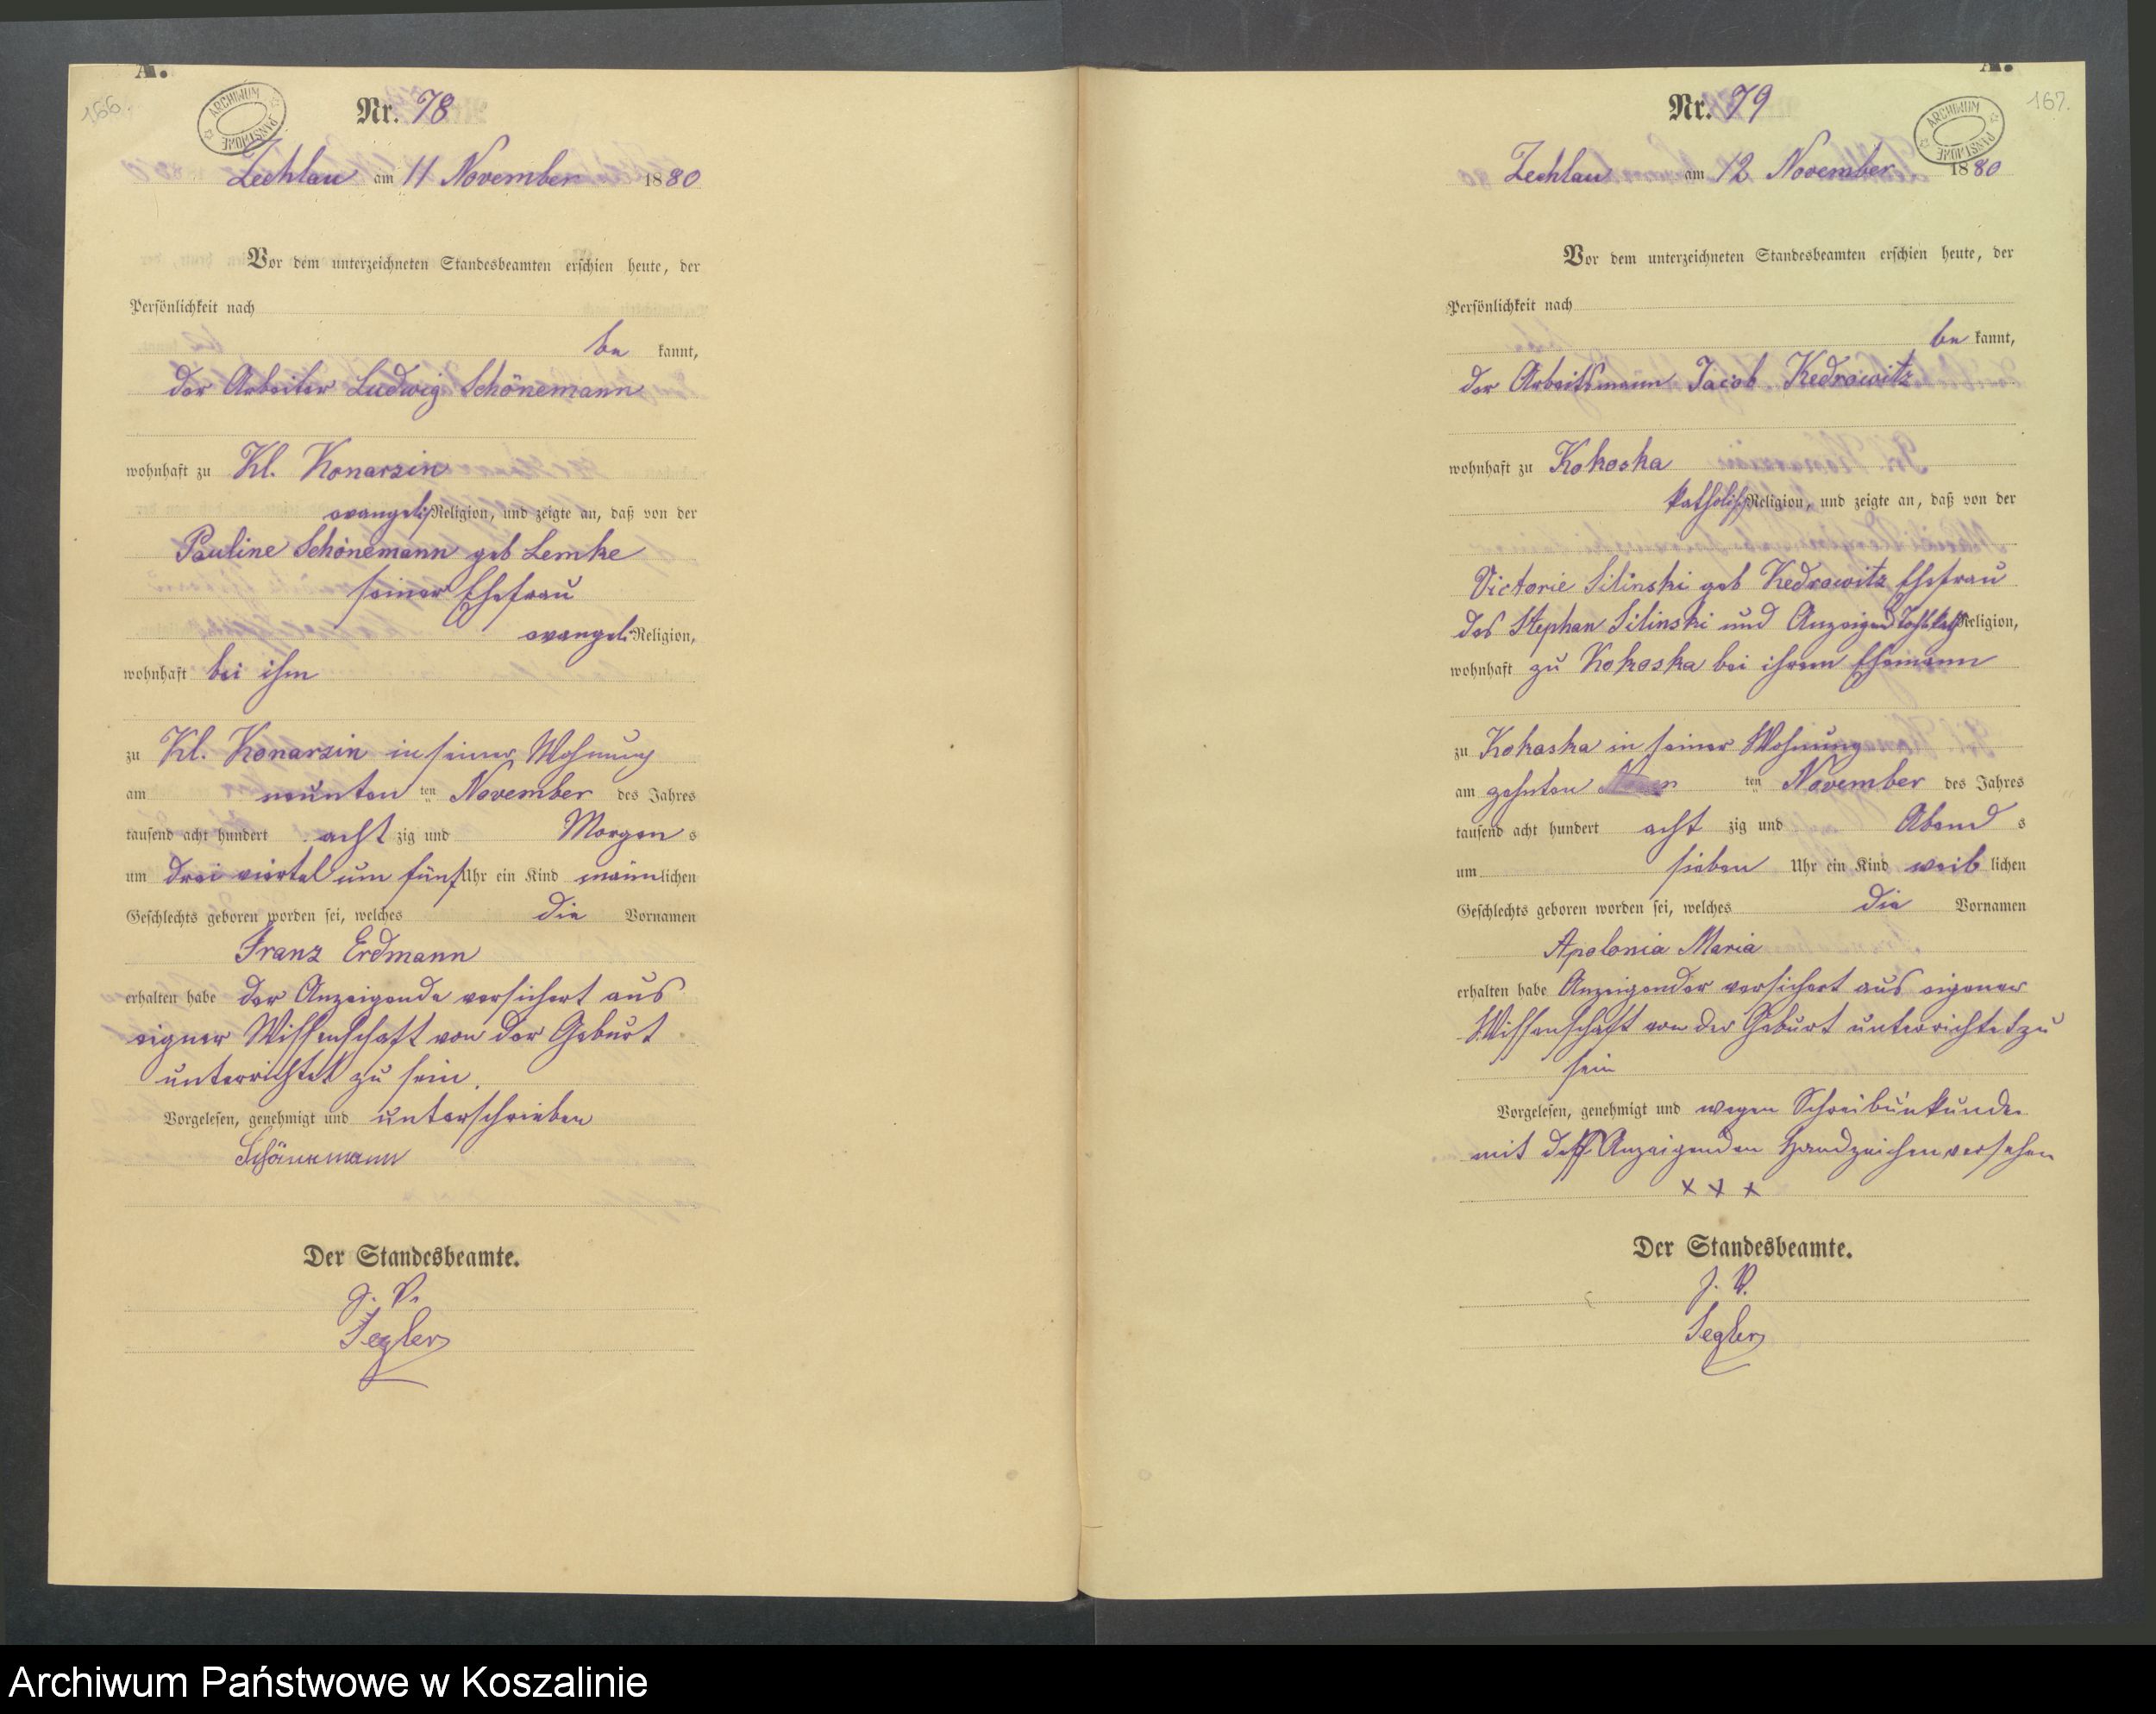 A.
166.
ARCHIWUM PAŃSTWOWE
Nr. 78
Zechlau am 11 November 1880
Vor dem unterzeichneten Standesbeamten erschien heute, der
Persönlichkeit nach
be kannt,
der Arbeiter Ludwig Schönemann
wohnhaft zu Kl. Konarzin
evangelisch Religion, und zeigte an, daß von der
Pauline Schönemann geb Lemke
seiner Ehefrau
evangel. Religion,
wohnhaft bei ihm
zu Kl. Konarzin in seiner Wohnung
am neunten ten November des Jahres
tausend acht hundert acht zig und Morgen s
um drei viertel um fünf Uhr ein Kind männ lichen
Geschlechts geboren worden sei, welches die Vornamen
Franz Erdmann
erhalten habe der Anzeigende versichert aus
eigner Wissenschaft von der Geburt
unterrichtet zu sein.
Vorgelesen, genehmigt und unterschrieben
Schönemann
Der Standesbeamte.
J. V.
Segler
A.
167.
ARCHIWUM PAŃSTWOWE
Nr. 79
Zechlau am 12 November 1880
Vor dem unterzeichneten Standesbeamten erschien heute, der
Persönlichkeit nach
be kannt,
der Arbeitsmann Jacob Kedrowitz
wohnhaft zu Kokoska
katholisch Religion, und zeigte an, daß von der
Victorie Silinski geb Kedrowitz Ehefrau
des Stephan Silinski und Anzeigend Tocht. kath Religion,
wohnhaft zu Kokoska bei ihrem Ehemann
zu Kokaska in seiner Wohnung
am zehnten ten November des Jahres
tausend acht hundert acht zig und Abend s
um sieben Uhr ein Kind weib lichen
Geschlechts geboren worden sei, welches die Vornamen
Apolonia Maria
erhalten habe Anzeigender versichert aus eigener
Wissenschaft von der Geburt unterrichtet zu
sein
Vorgelesen, genehmigt und wegen Schreibunkunde
mit deß Anzeigenden Handzeichen versehen
x x x
Der Standesbeamte.
J. V.
Segler
Archiwum Państwowe w Koszalinie